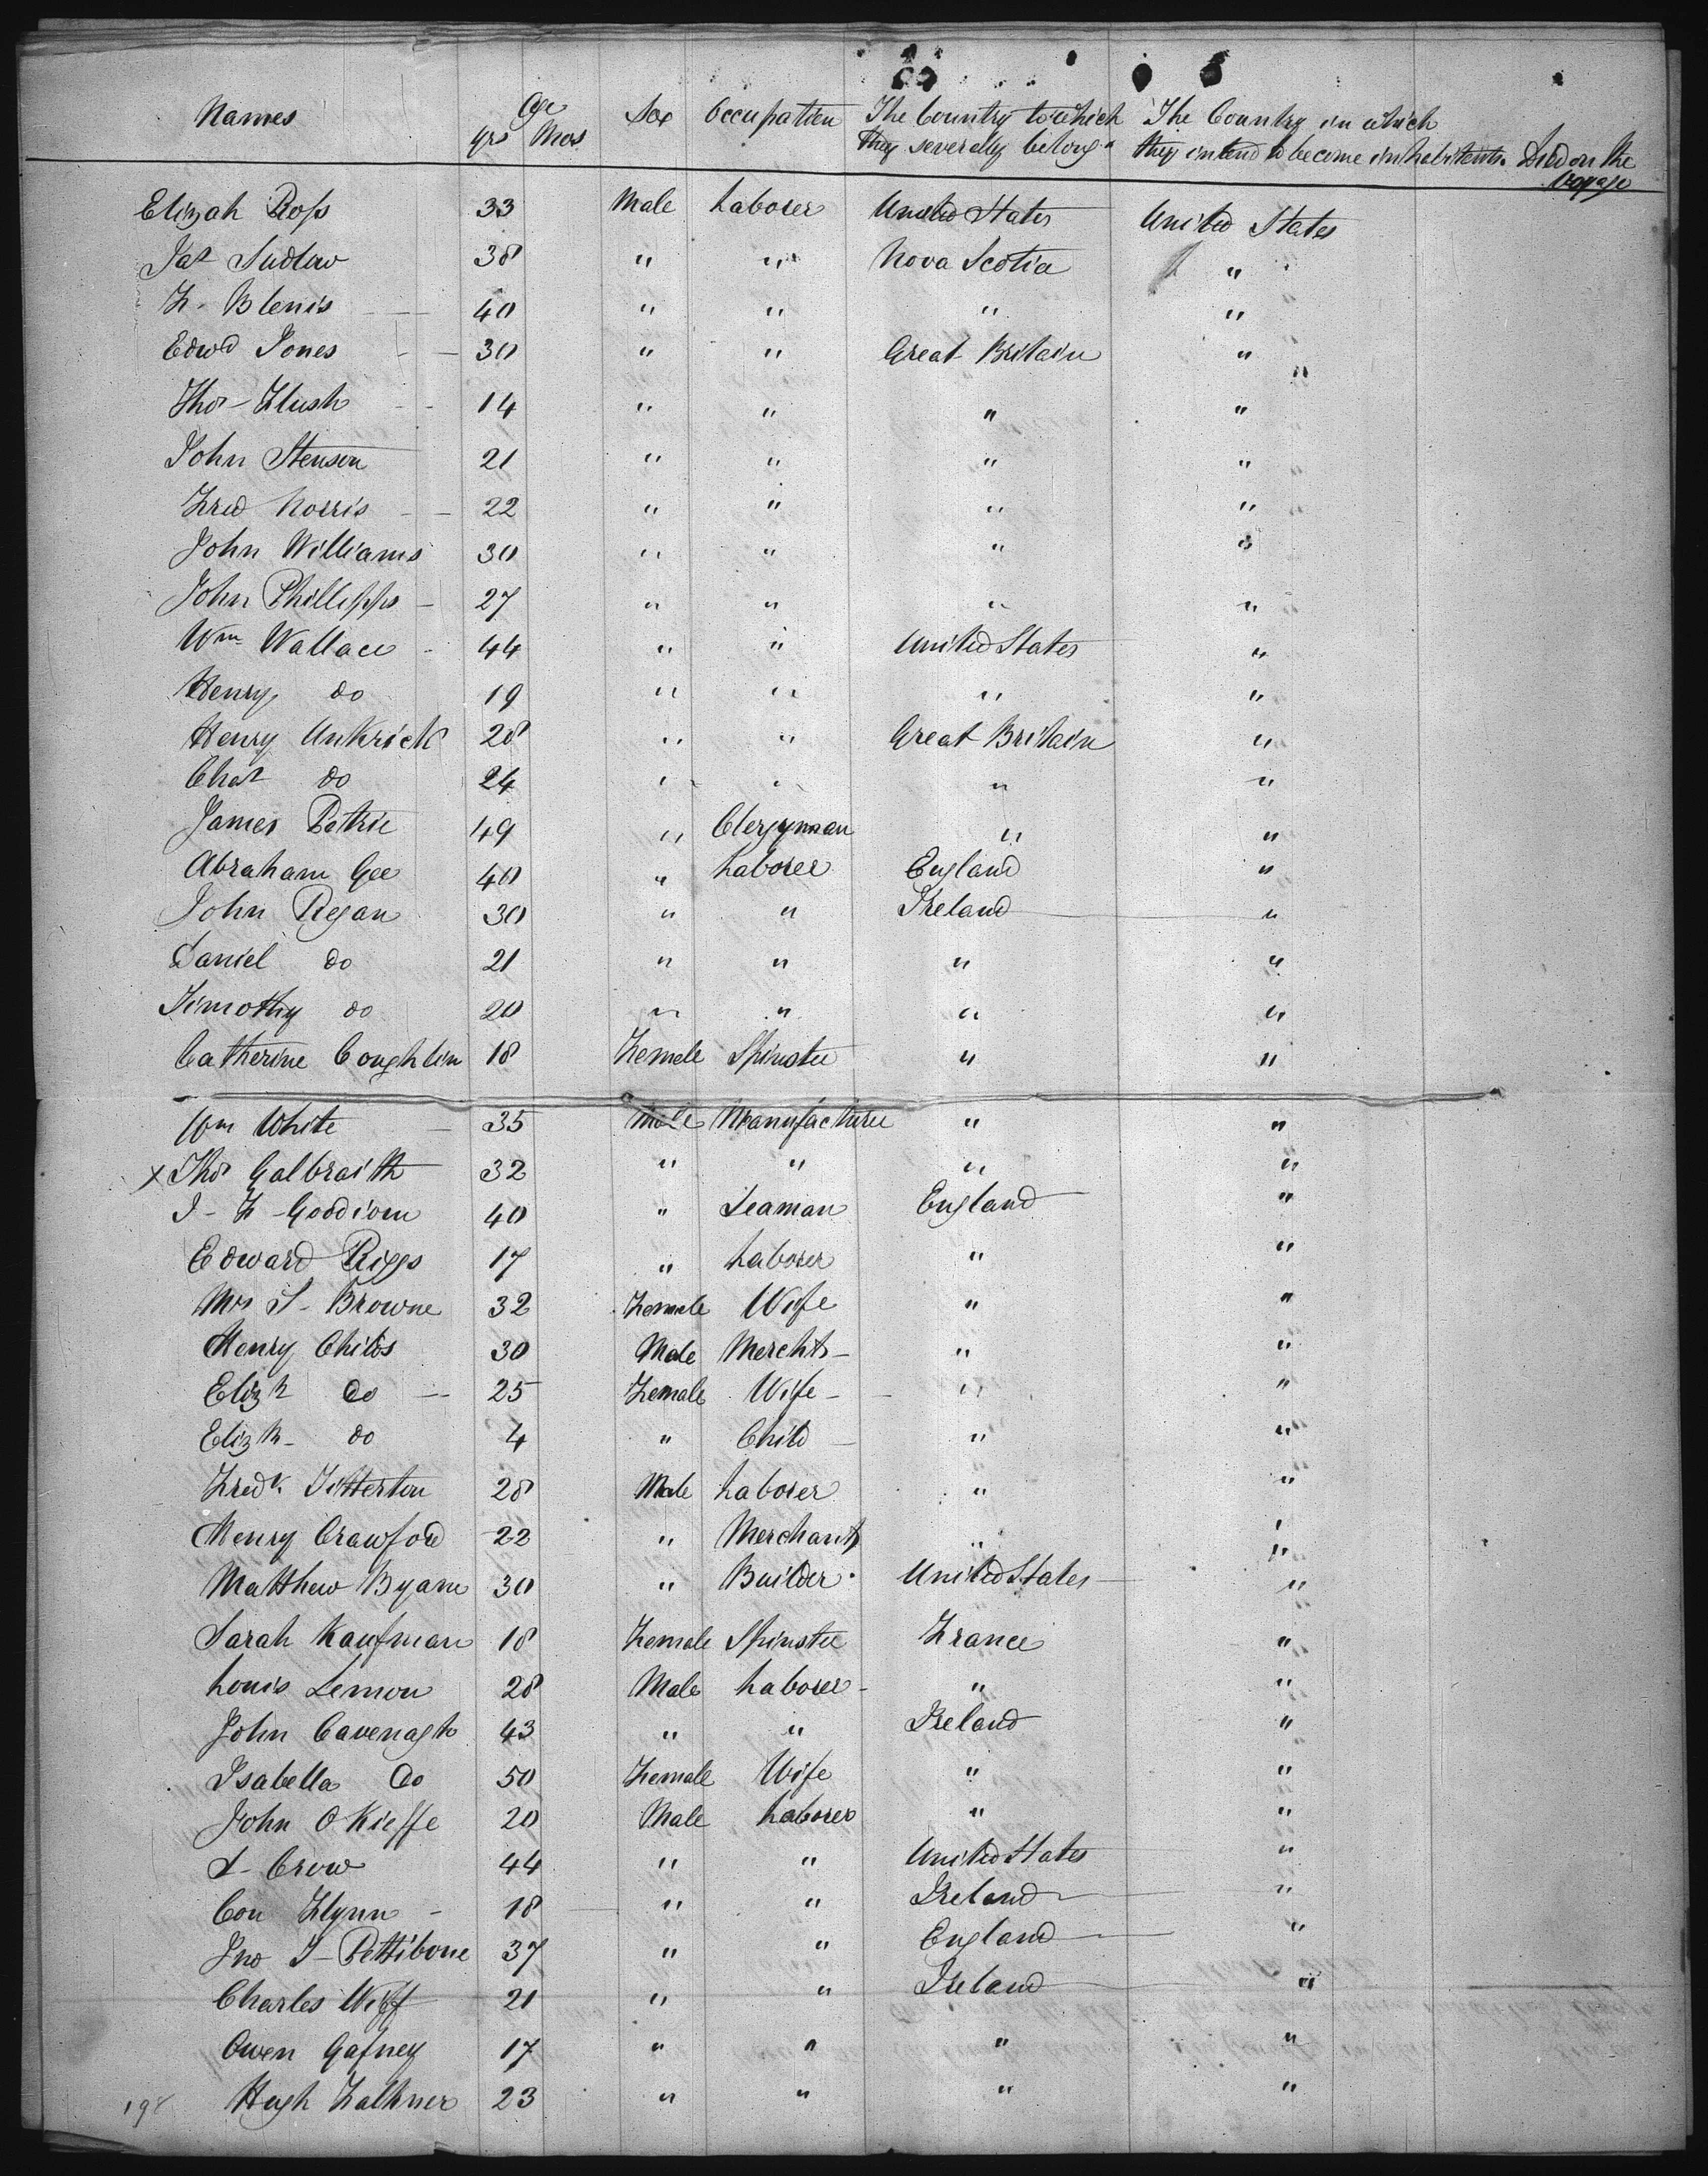 Names Age Sex Occupation The Country to which The Country in which
yrs Mos they severally belong " they intend to become inhabitants. Died on the
voyage
Elizah Ross 33 Male Laborer United States United States
Jas Sudlow 38 " " Nova Scotia "
F. Blenis 40 " " " "
Edwd Jones 30 " " Great Britain "
Thos Flush 14 " " " "
John Stenson 21 " " " "
Fred Norris 22 " " " "
John Williams 30 " " " "
John Phillipps 27 " " " "
Wm Wallace 44 " " United States "
Henry do 19 " " " "
Henry Unkrick 28 " " Great Britain "
Chas do 24 " " " "
James Petrie 49 " Clergyman " "
Abraham Gee 40 " Laborer England "
John Regan 30 " " Ireland "
Daniel do 21 " " " "
Timothy do 20 " " " "
Catherine Coughlin 18 Female Spinster " "
Wm White 35 Male Manufacturer " "
x Thos Galbraith 32 " " " "
J - F - Goodiom 40 " Seaman England "
Edward Riggs 17 " Laborer " "
Mrs S - Browne 32 Female Wife " "
Henry Childs 30 Male Merchts " "
Elizh do 25 Female Wife " "
Elizh do 4 " Child " "
Fredk Titterton 28 Male Laborer " "
Henry Crawford 22 " Merchant " "
Matthew Byam 30 " Builder United States "
Sarah Kaufman 18 Female Spinster France "
Louis Lemon 28 Male Laborer " "
John Cavenagh 43 " " Ireland "
Isabella do 50 Female Wife " "
John O Kieffe 20 Male Laborer " "
S - Crow 44 " " United States "
Con Flynn 18 " " Ireland "
Jno J - Pettibone 37 " " England "
Charles Wiff 21 " " Ireland "
Owen Gafney 17 " " " "
Hugh Falkner 23 " " " "